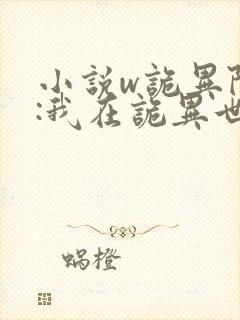 小説w詭異
:我在詭異世
蝸橙